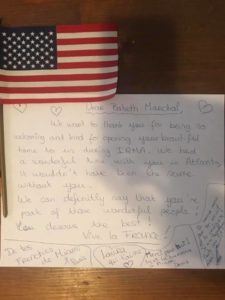 Dear Marechal,
We want to thank you for being so
welcoming and kind for opening your beautiful
home to us during IRMA. We had
a wonderful time with you in Atlanta,
it wouldn't have been the same
without you.
We can definitly say that you're
part of those wonderful people!
You deserve the best!
Vive la FRANCE!
De los
Frenchies de Miami